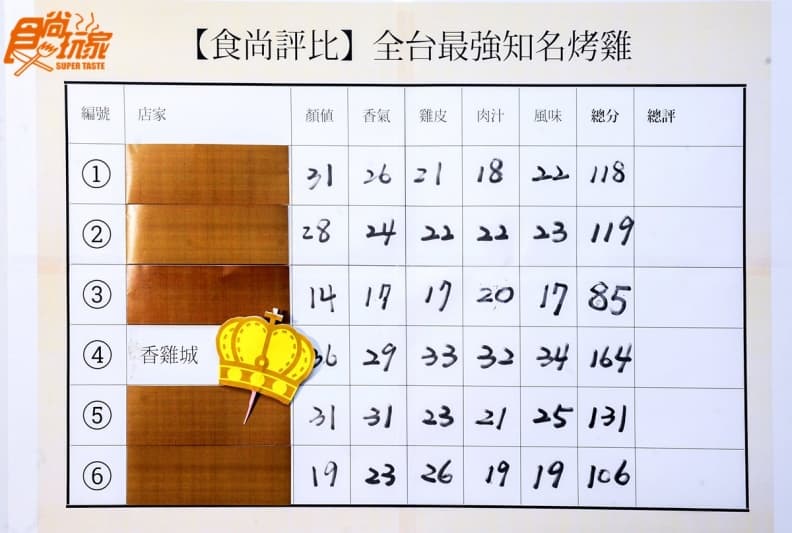 食尚玩家
SUPER TASTE
【食尚評比】全台最強知名烤雞
編號 店家 顏值 香氣 雞皮 肉汁 風味 總分 總評
① 31 26 21 18 22 118
② 28 24 22 22 23 119
③ 14 17 17 20 17 85
④ 香雞城 36 29 33 32 34 164
⑤ 31 31 23 21 25 131
⑥ 19 23 26 19 19 106